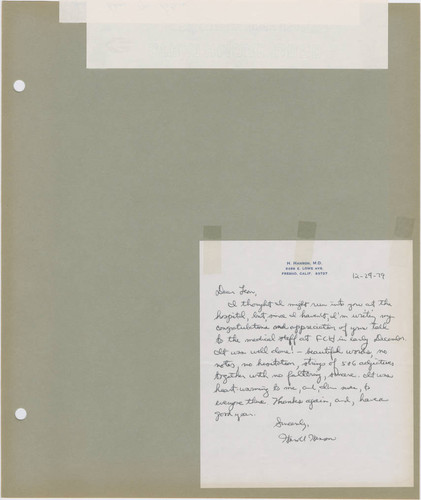 H. M.D.
FRESNO, CALIF. 93727
12-29-79
Dear
I thought I might run into you at the
hospital, but since I haven't, I'm writing my
congratulations and appreciation of your talk
to the medical staff at FCH in early December.
It was well done! - beautiful words, no
notes, no hesitation, strings of 5 & 6 adjectives
together with no faltering, . It was
heart warming to me, and, I'm sure, to
everyone there. Thanks again, and, have a
good year.
Sincerely,